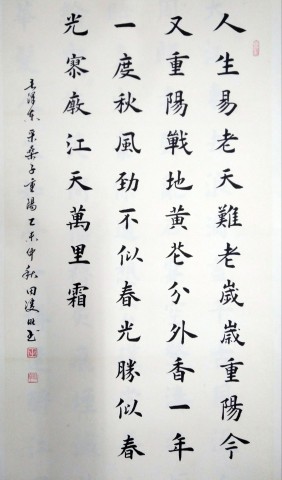 人生易老天難老歲歲重陽今
又重陽戰地黃花分外香一年
一度秋風勁不似春光勝似春
光寥廓江天萬里霜
毛澤東采桑子重陽乙未仲秋田